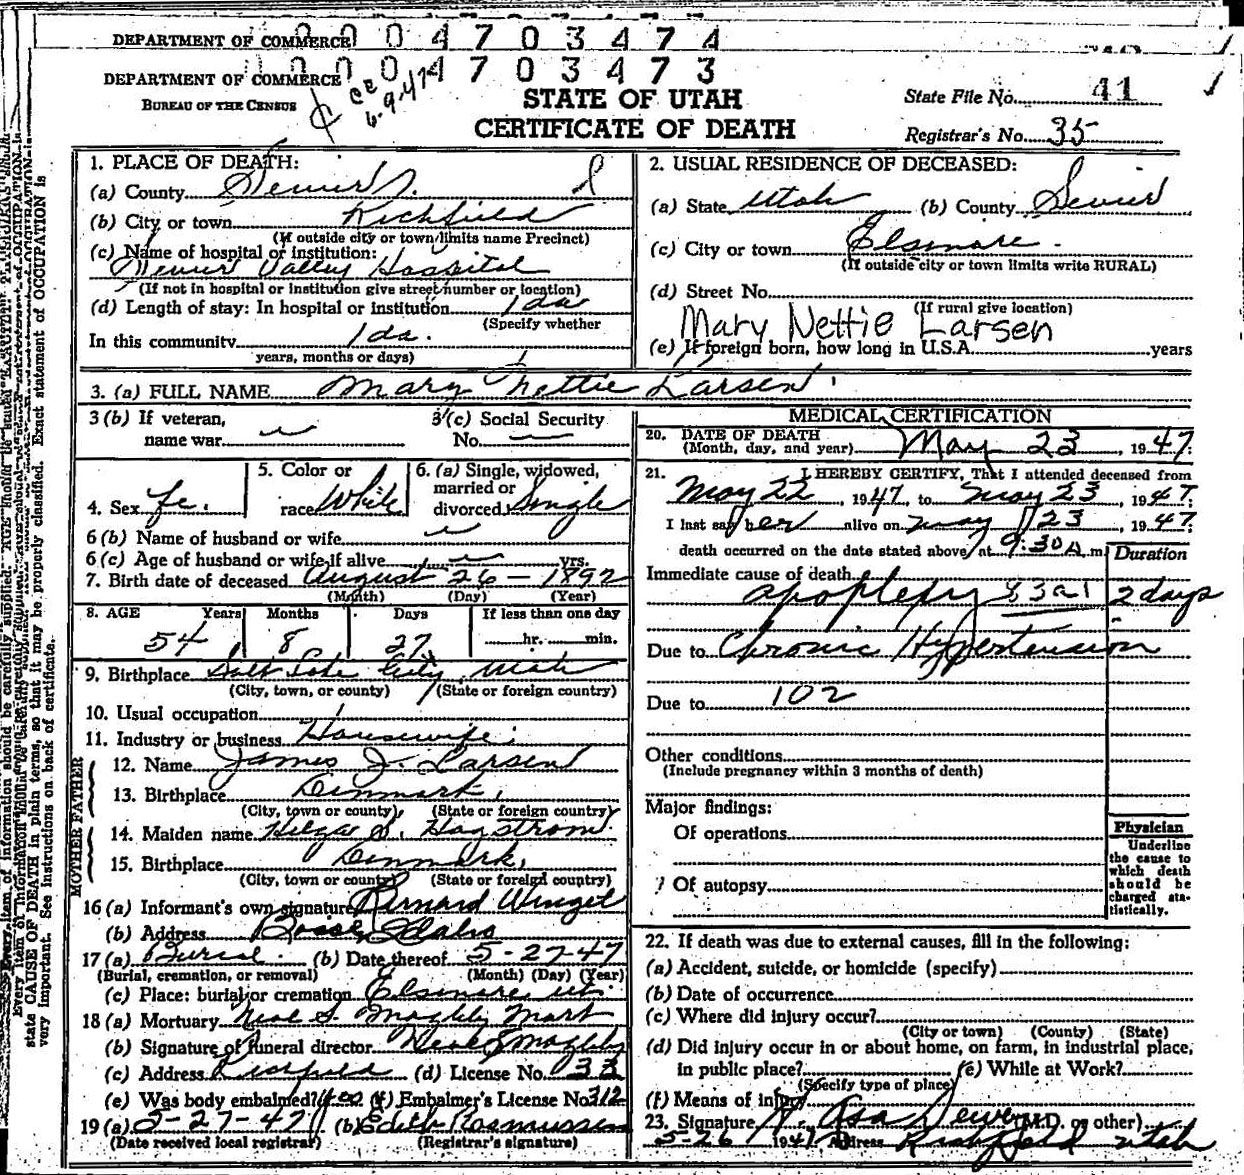 DEPARTMENT OF COMMERCE 0004703474
DEPARTMENT OF COMMERCE 0004703473
BUREAU OF THE CENSUS
CE
6-9-47
STATE OF UTAH
CERTIFICATE OF DEATH
State File No. 41
Registrar's No. 35
1. PLACE OF DEATH:
(a) County Sevier
(b) City or town Richfield
(If outside city or town limits name Precinct)
(c) Name of hospital or institution:
Sevier Valley Hospital
(If not in hospital or institution give street number or location)
(d) Length of stay: In hospital or institution 1 da
(Specify whether
In this community 1 da.
years, months or days)
2. USUAL RESIDENCE OF DECEASED:
(a) State Utah (b) County Sevier
(c) City or town Elsinore.
(If outside city or town limits write RURAL)
(d) Street No.
(If rural give location)
Mary Nettie Larsen
(e) If foreign born, how long in U.S.A. years
3. (a) FULL NAME Mary Nettie Larsen
3 (b) If veteran,
name war
3 (c) Social Security
No.
4. Sex Fe.
5. Color or
race White
6. (a) Single, widowed,
married or
divorced Single
6 (b) Name of husband or wife
6 (c) Age of husband or wife if alive yrs.
7. Birth date of deceased August 26 - 1892
(Month) (Day) (Year)
8. AGE Years Months Days If less than one day
54 8 27 hr. min.
9. Birthplace Salt Lake City, Utah
(City, town, or county) (State or foreign country)
10. Usual occupation
11. Industry or business Housewife
FATHER
12. Name James J. Larsen
13. Birthplace Denmark,
(City, town or county) (State or foreign country)
MOTHER
14. Maiden name Hilga Hagstrom
15. Birthplace Denmark,
(City, town or county) (State or foreign country)
16 (a) Informant's own signature Bernard Winget
(b) Address Boise, Idaho
17 (a) Burial (b) Date thereof 5-27-47
(Burial, cremation, or removal) (Month) (Day) (Year)
(c) Place: burial or cremation Elsinore, Ut.
18 (a) Mortuary Neal S. Magleby Mort
(b) Signature of funeral director Neal S Magleby
(c) Address Richfield (d) License No. 33
(e) Was body embalmed? yes (f) Embalmer's License No. 312
19 (a) 5-27-47 (b) Edith Rasmussen
(Date received local registrar) (Registrar's signature)
MEDICAL CERTIFICATION
20. DATE OF DEATH
(Month, day, and year) May 23, 1947.
21. I HEREBY CERTIFY, That I attended deceased from
May 22 1947, to May 23, 1947.
I last saw her alive on May 23, 1947.
death occurred on the date stated above, at 9:30 A.m.
Duration
Immediate cause of death
apoplexy 83a1 2 days
Due to Chronic Hypertension
Due to 102
Other conditions
(Include pregnancy within 3 months of death)
Major findings:
Of operations
Of autopsy
Physician
Underline
the cause to
which death
should be
charged sta-
tistically.
22. If death was due to external causes, fill in the following:
(a) Accident, suicide, or homicide (specify)
(b) Date of occurrence
(c) Where did injury occur?
(City or town) (County) (State)
(d) Did injury occur in or about home, on farm, in industrial place,
in public place? (e) While at Work?
(Specify type of place)
(f) Means of injury
23. Signature (M.D. or other)
5-26 1947 Address Richfield Utah
state CAUSE OF DEATH in plain terms, so that it may be properly classified. Exact statement of OCCUPATION is
very important. See instructions on back of certificate.